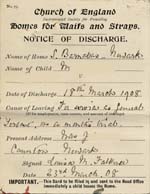 No. 19.
Church of England
Incorporated Society for Providing
Homes for Waifs and Strays.
NOTICE OF DISCHARGE.
Name of Home S. Barnabas, Newark
Name of Child M
Date of Discharge 18th March 1908.
Cause of Leaving For service as General
Servant, on a month's trial.
Present Address Mrs J
Newark
Signed
Date 23rd March 08
IMPORTANT. This Card to be filled in and sent to the Head Office
immediately a child leaves the Home.